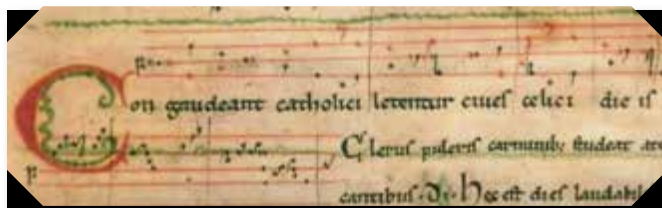 Congaudeant catholici letentur ciues celici die is
Clerus pulcris carminib; studeat atq
cantibus · Di · Hec est dies laudabil